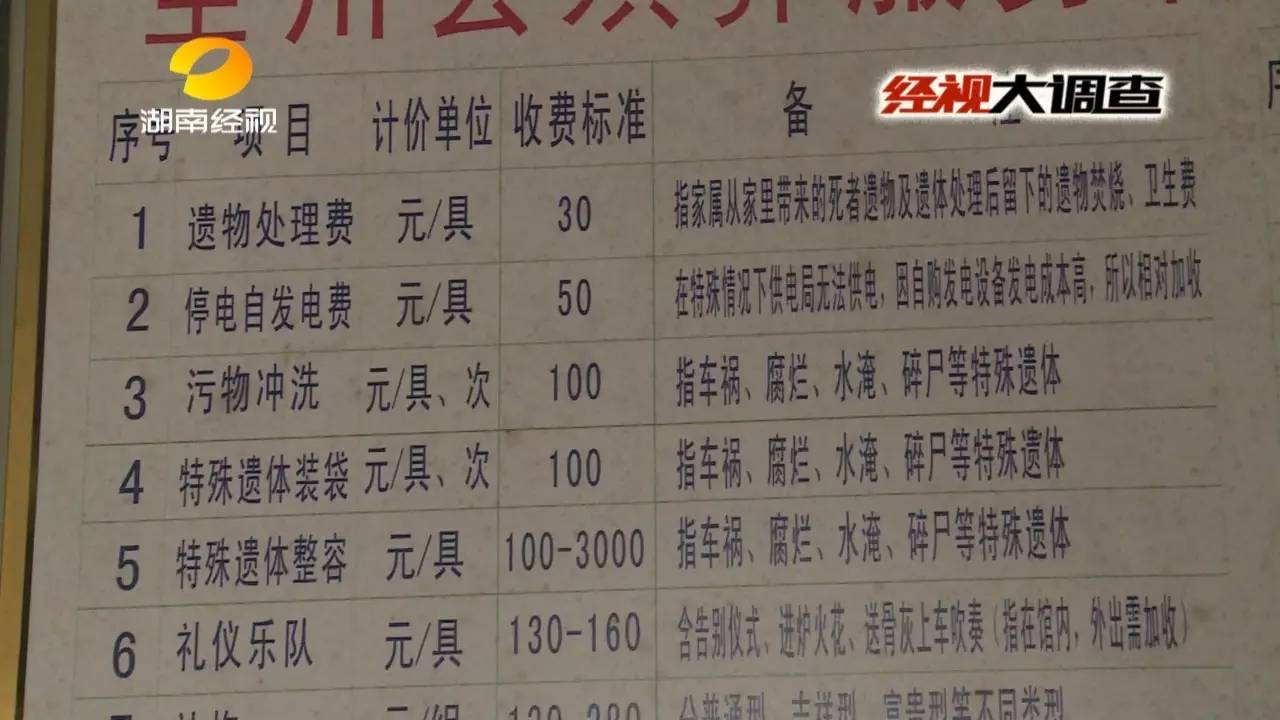 湖南经视
经视大调查
序号 项目 计价单位 收费标准 备
1 遗物处理费 元/具 30 指家属从家里带来的死者遗物及遗体处理后留下的遗物焚烧、卫生费
2 停电自发电费 元/具 50 在特殊情况下供电局无法供电，因自购发电设备发电成本高，所以相对加收
3 污物冲洗 元/具、次 100 指车祸、腐烂、水淹、碎尸等特殊遗体
4 特殊遗体装袋 元/具、次 100 指车祸、腐烂、水淹、碎尸等特殊遗体
5 特殊遗体整容 元/具 100-3000 指车祸、腐烂、水淹、碎尸等特殊遗体
6 礼仪乐队 元/具 130-160 含告别仪式、进炉火花、送骨灰上车吹奏（指在馆内，外出需加收）
元/组 130-380 分普通型、吉祥型、富贵型等不同类型